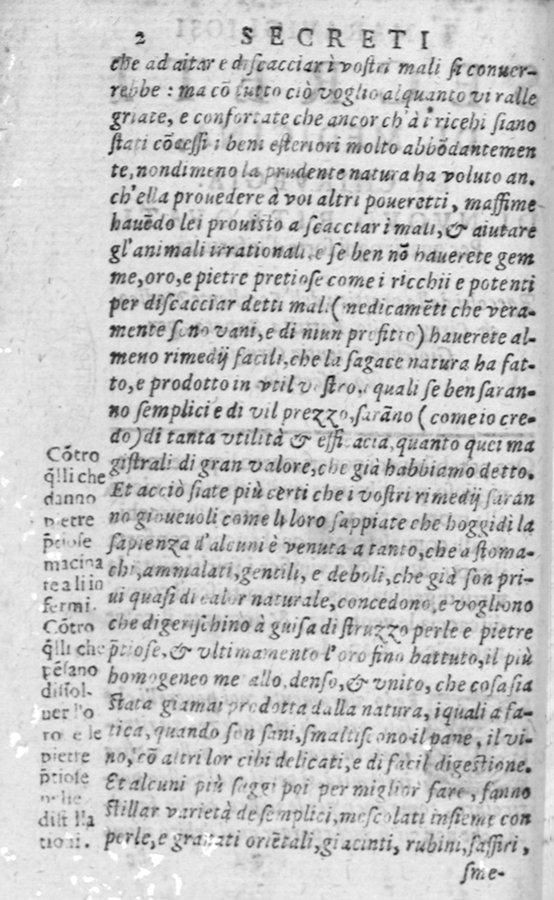 2 SECRETI
che ad aitar e discacciar i vostri mali si conuer-
rebbe : ma cō tutto ciò voglio alquanto vi ralle
griate, e confortate che ancor ch'à i ricchi siano
stati cōcessi i beni esteriori molto abbōdantemen
te, nondimeno la prudente natura ha voluto an.
ch'ella prouedere à voi altri poueretti, massime
hauēdo lei prouisto a scacciar i mali, & aiutare
gl'animali irrationali, e se ben nō hauerete gem
me, oro, e pietre pretiose come i ricchi i e potenti
per discacciar detti mali (medicamēti che vera-
mente sono vani, e di niun profitto) hauerete al-
meno rimedij facili, che la sagace natura ha fat-
to, e prodotto in vtil vostro, i quali se ben saran-
no semplici e di vil prezzo, sarāno (come io cre-
do) di tanta vtilità & efficacia, quanto quei ma
gistrali di gran valore, che già habbiamo detto.
Et acciò siate più certi che i vostri rimedij saran
no gioueuoli come li loro sappiate che hoggidi la
sapienza d'alcuni è venuta a tanto, che a stoma-
chi, ammalati, gentili, e deboli, che già son pri-
ui quasi di calor naturale, concedono, e vogliono
che digerischino à guisa di struzzo perle e pietre
p̄tiose, & vltimamento l'oro fino battuto, il più
homogeneo metallo, denso, & vnito, che cosa sia
stata giamai prodotta dalla natura, i quali a fa-
tica, quando son sani, smaltiscono il pane, il vi-
no, cō altri lor cibi delicati, e di facil digestione.
Et alcuni più saggi poi per miglior fare, fanno
stillar varietà de semplici, mescolati insieme con
perle, e granati oriētali, giacinti, rubini, saffiri,
sme-
Cōtro
q̄lli che
danno
pietre
p̄tiose
macina
te a li in
fermi.
Cōtro
q̄lli che
pēsano
dissol-
uer l'o
ro e le
pietre
p̄tiose
nelle
distilla
tioni.